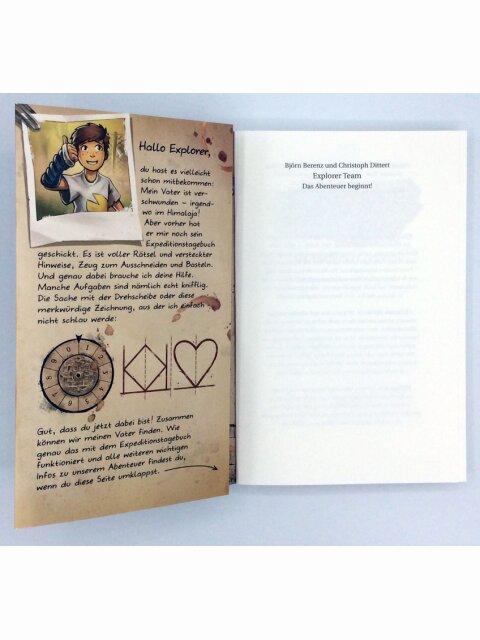 Hallo Explorer,
du hast es vielleicht
schon mitbekommen:
Mein Vater ist ver-
schwunden – irgend-
wo im Himalaja!
Aber vorher hat
er mir noch sein
Expeditionstagebuch
geschickt. Es ist voller Rätsel und versteckter
Hinweise, Zeug zum Ausschneiden und Basteln.
Und genau dabei brauche ich deine Hilfe.
Manche Aufgaben sind nämlich echt knifflig.
Die Sache mit der Drehscheibe oder diese
merkwürdige Zeichnung, aus der ich einfach
nicht schlau werde:
0 1 2 3 4 5 6 7 8 9
Gut, dass du jetzt dabei bist! Zusammen
können wir meinen Vater finden. Wie
genau das mit dem Expeditionstagebuch
funktioniert und alle weiteren wichtigen
Infos zu unserem Abenteuer findest du,
wenn du diese Seite umklappst.
Björn Berenz und Christoph Dittert
Explorer Team
Das Abenteuer beginnt!